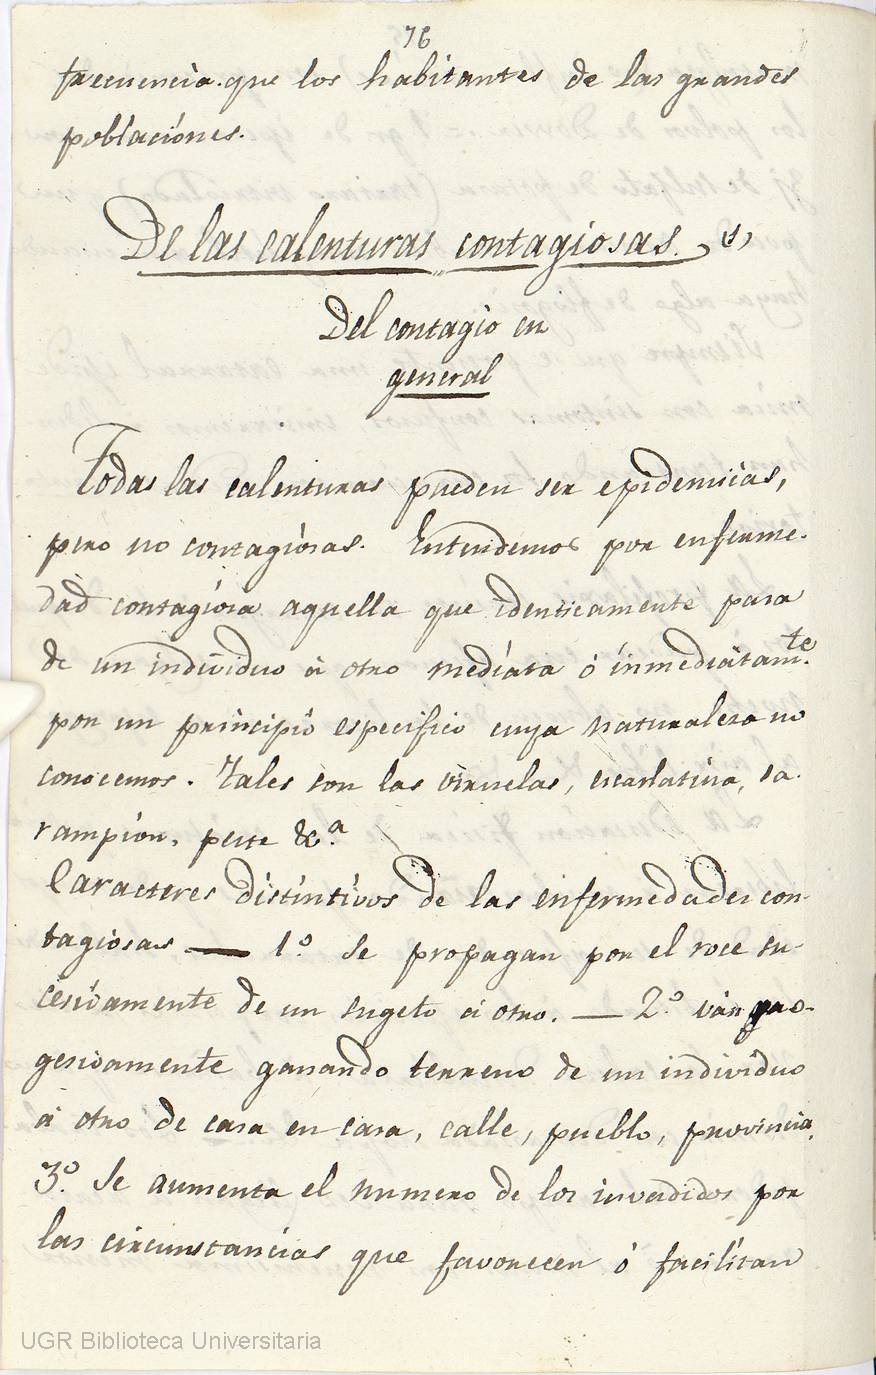 76
frecuencia que los habitantes de las grandes
poblaciónes.
De las calenturas contagiosas.
Del contagio en
general
Todas las calenturas pueden ser epidemicas,
pero no contagiosas. Entendemos por enferme-
dad contagiosa aquella que identicamente pasa
de un individuo á otro mediata ó inmediatamte.
por un principio especifico cuya naturaleza no
conocemos. Tales son las viruelas, escarlatina, sa-
rampion, peste &c.a
Caracteres distintivos de las enfermedades con-
tagiosas — 1.º Se propagan por el roce su-
cesivamente de un sugeto á otro. — 2.º ván pro-
gesivamente ganando terreno de un individuo
á otro de casa en casa, calle, pueblo, provincia.
3.º Se aumenta el numero de los invadidos por
las circunstancias que favorecen ó facilitan
UGR Biblioteca Universitaria